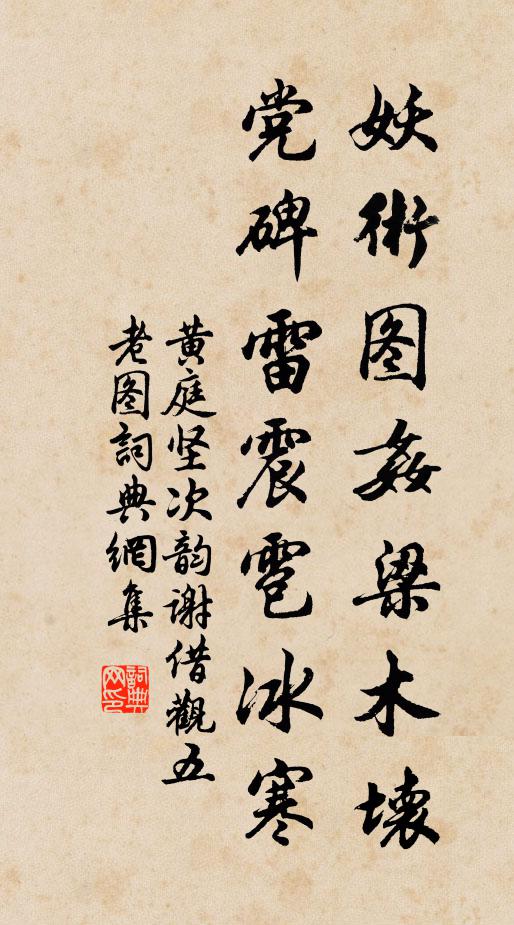 妖術图姦梁木壞
党碑雷震雹冰寒
黄庭坚次韵谢借觀五
老图詞典網集
詞典
网印